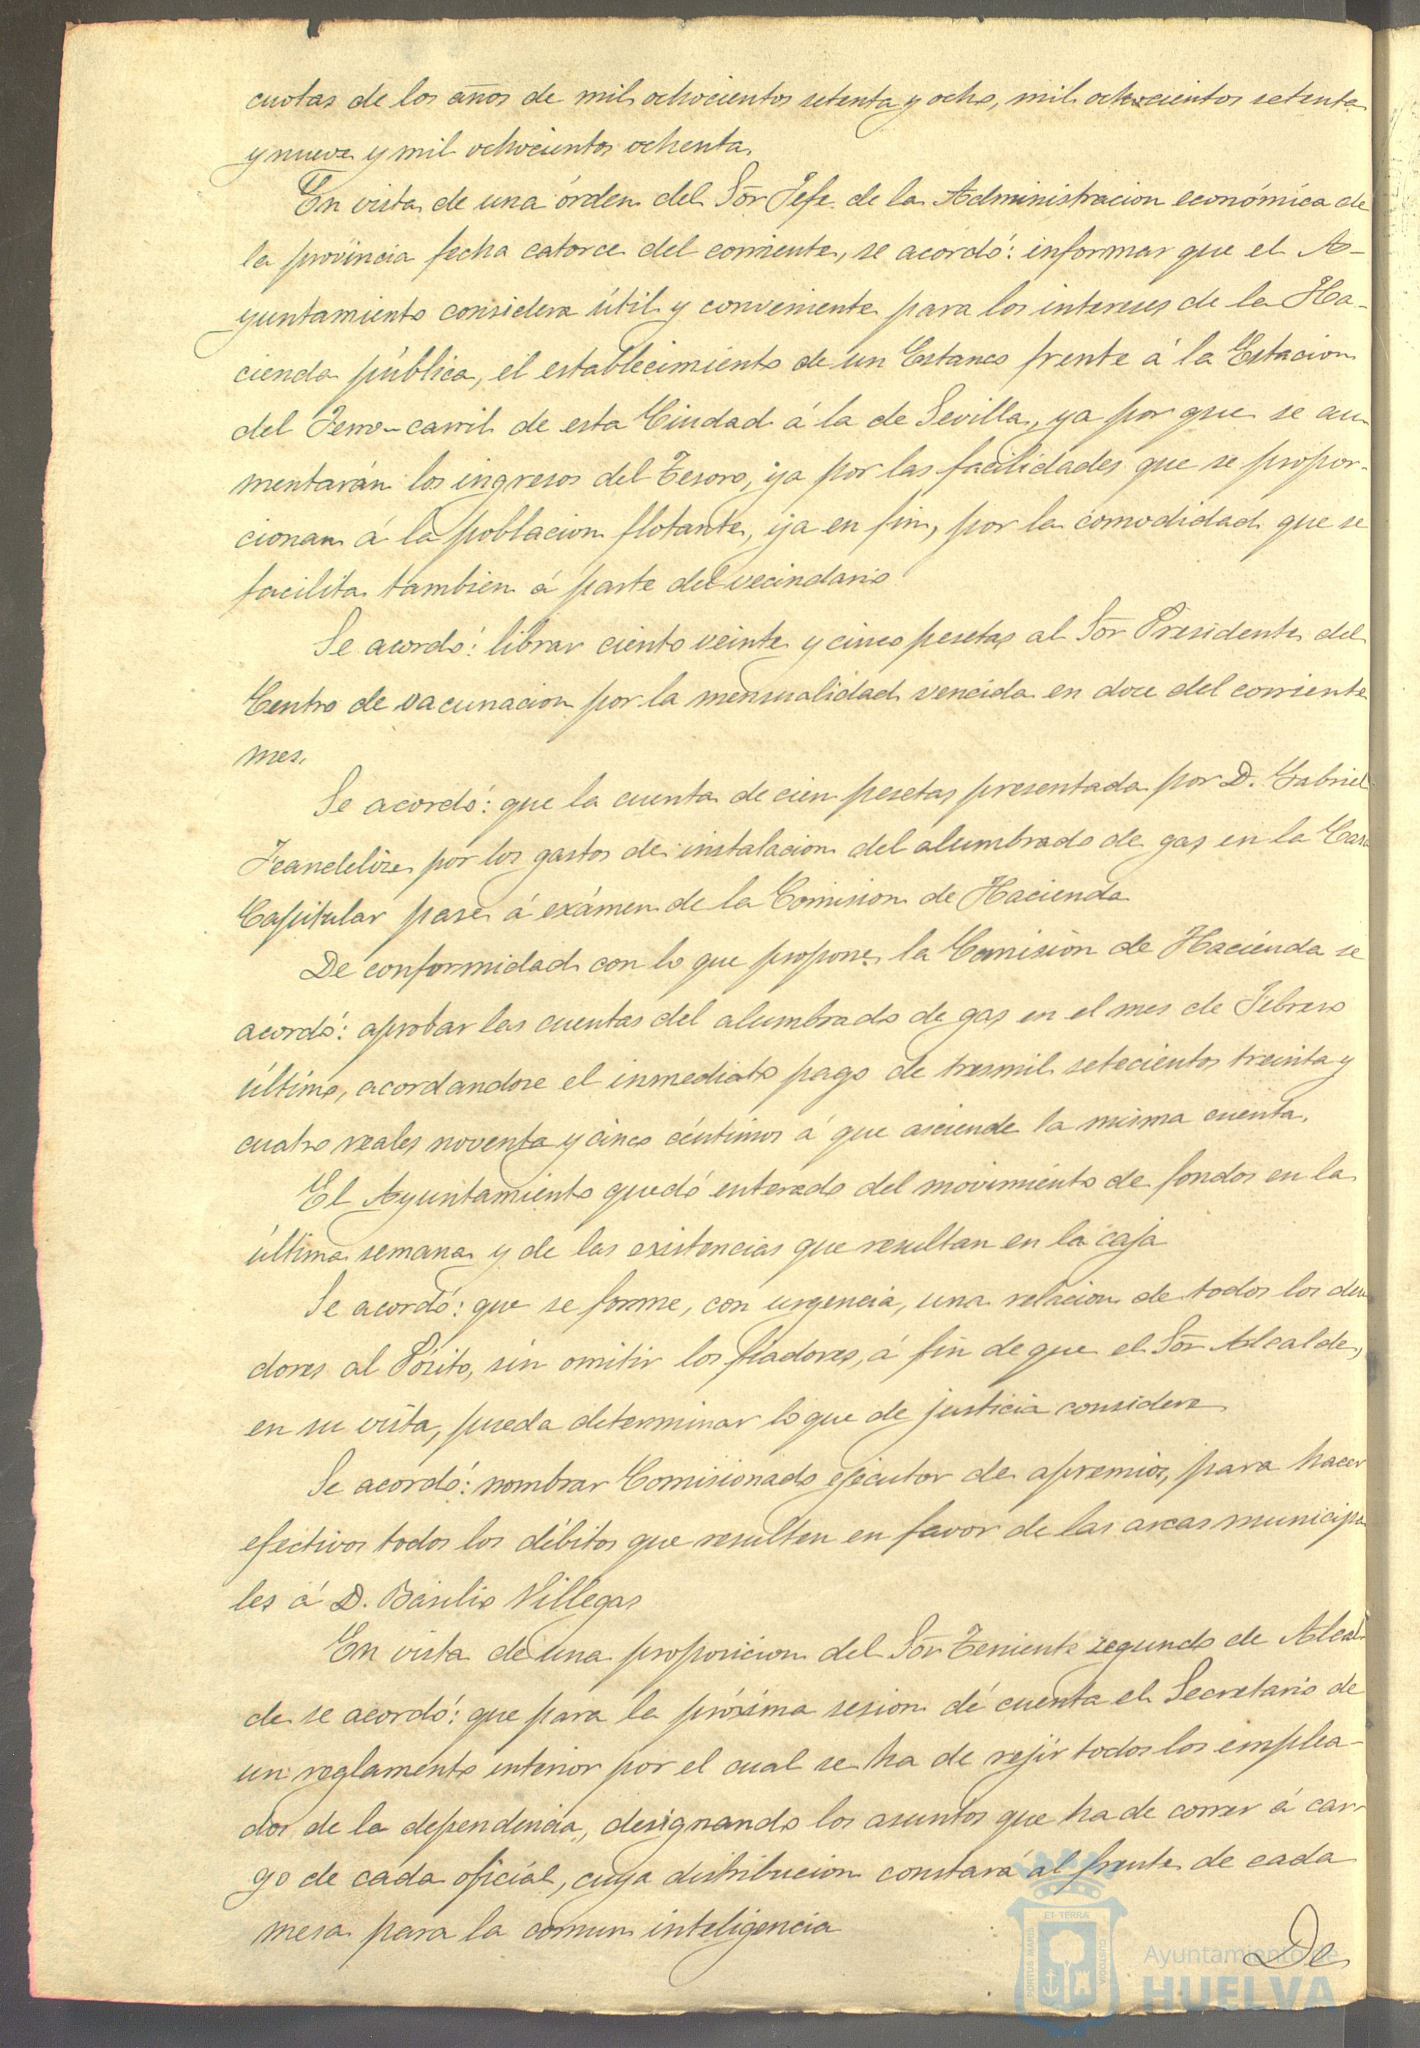 cuotas de los años de mil ochocientos setenta y ocho, mil ochocientos setenta
y nueve y mil ochocientos ochenta.
En vista de una órden del Sor Jefe de la Administracion económica de
la provincia fecha catorce del corriente, se acordó: informar que el A-
yuntamiento considera útil y conveniente para los intereses de la Ha-
cienda pública, el establecimiento de un Estanco frente á la Estacion
del Ferro-carril de esta Ciudad á la de Sevilla, ya por que se au
mentarán los ingresos del Tesoro, ya por las facilidades que se propor-
cionan á la poblacion flotante, ya en fin, por la comodidad que se
facilita tambien á parte del vecindario
Se acordó: librar ciento veinte y cinco pesetas al Sor Presidente del
Centro de vacunacion por la mensualidad vencida en doce del corriente
mes.
Se acordó: que la cuenta de cien pesetas presentada por D. Gabriel
por los gastos de instalacion del alumbrado de gas en la Casa
Capitular pase á exámen de la Comision de Hacienda
De conformidad con lo que propone la Comision de Hacienda se
acordó: aprobar las cuentas del alumbrado de gas en el mes de Febrero
último, acordandose el inmediato pago de tresmil setecientos treinta y
cuatro reales noventa y cinco céntimos á que asciende la misma cuenta.
El Ayuntamiento quedó enterado del movimiento de fondos en la
última semana y de las existencias que resultan en la caja
Se acordó: que se forme, con urgencia, una relacion de todos los deu
dores al Pósito, sin omitir los fiadores, á fin de que el Sor Alcalde,
en su vista, pueda determinar lo que de justicia considere
Se acordó: nombrar Comisionado ejecutor de apremios, para hacer
efectivos todos los débitos que resulten en favor de las arcas municipa
les á D. Basilio Villegas
En vista de una proposicion del Sor Teniente segundo de Alcal
de se acordó: que para la próxima sesion dé cuenta el Secretario de
un reglamento interior por el cual se ha de rejir todos los emplea-
dos de la dependencia, designando los asuntos que ha de correr á car-
go de cada oficial, cuya distribucion constará al frente de cada
mesa para la comun inteligencia
De
ET TERRÆ
PORTUS MARIS
CUSTODIA
Ayuntamiento de
HUELVA